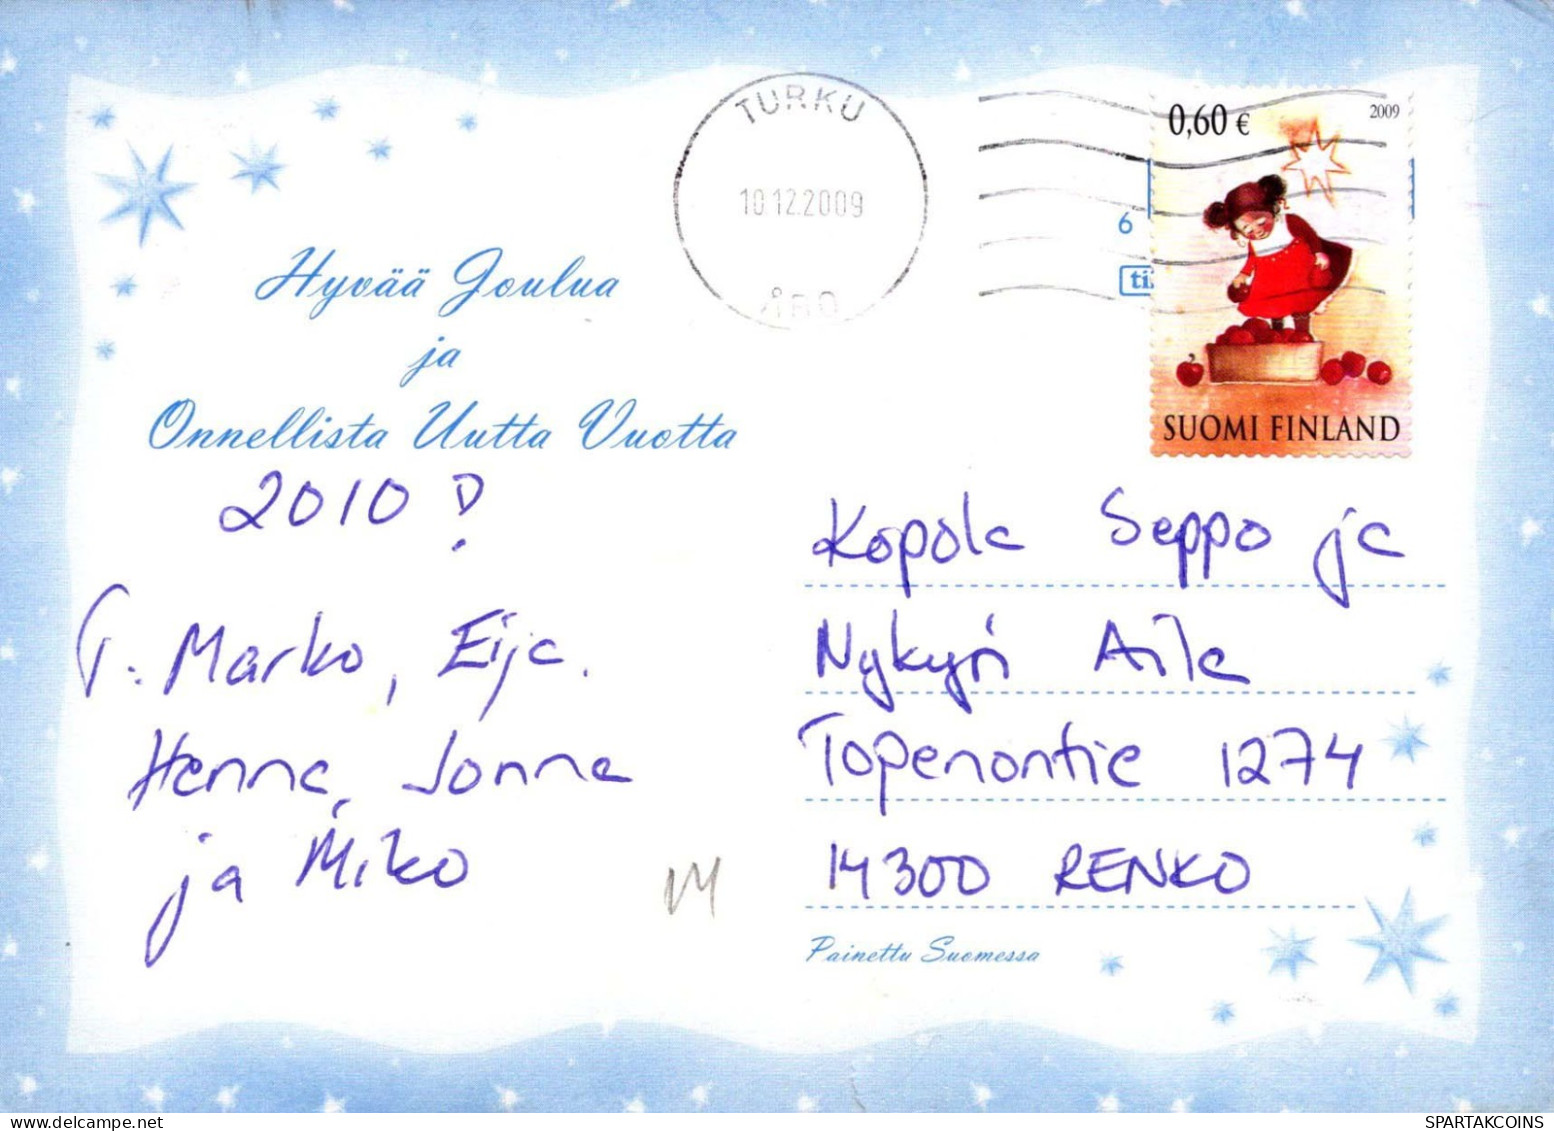 TURKU
10.12.2009
ÅBO
0,60 €
2009
6
SUOMI FINLAND
Hyvää Joulua
ja
Onnellista Uutta Vuotta
2010!
T. Marko, Eija.
Henna, Jonna
ja Miko
M
Kopola Seppo ja
Nykyri Aila
Topenontie 1274
14300 RENKO
Painettu Suomessa
SPARTAKCOINS